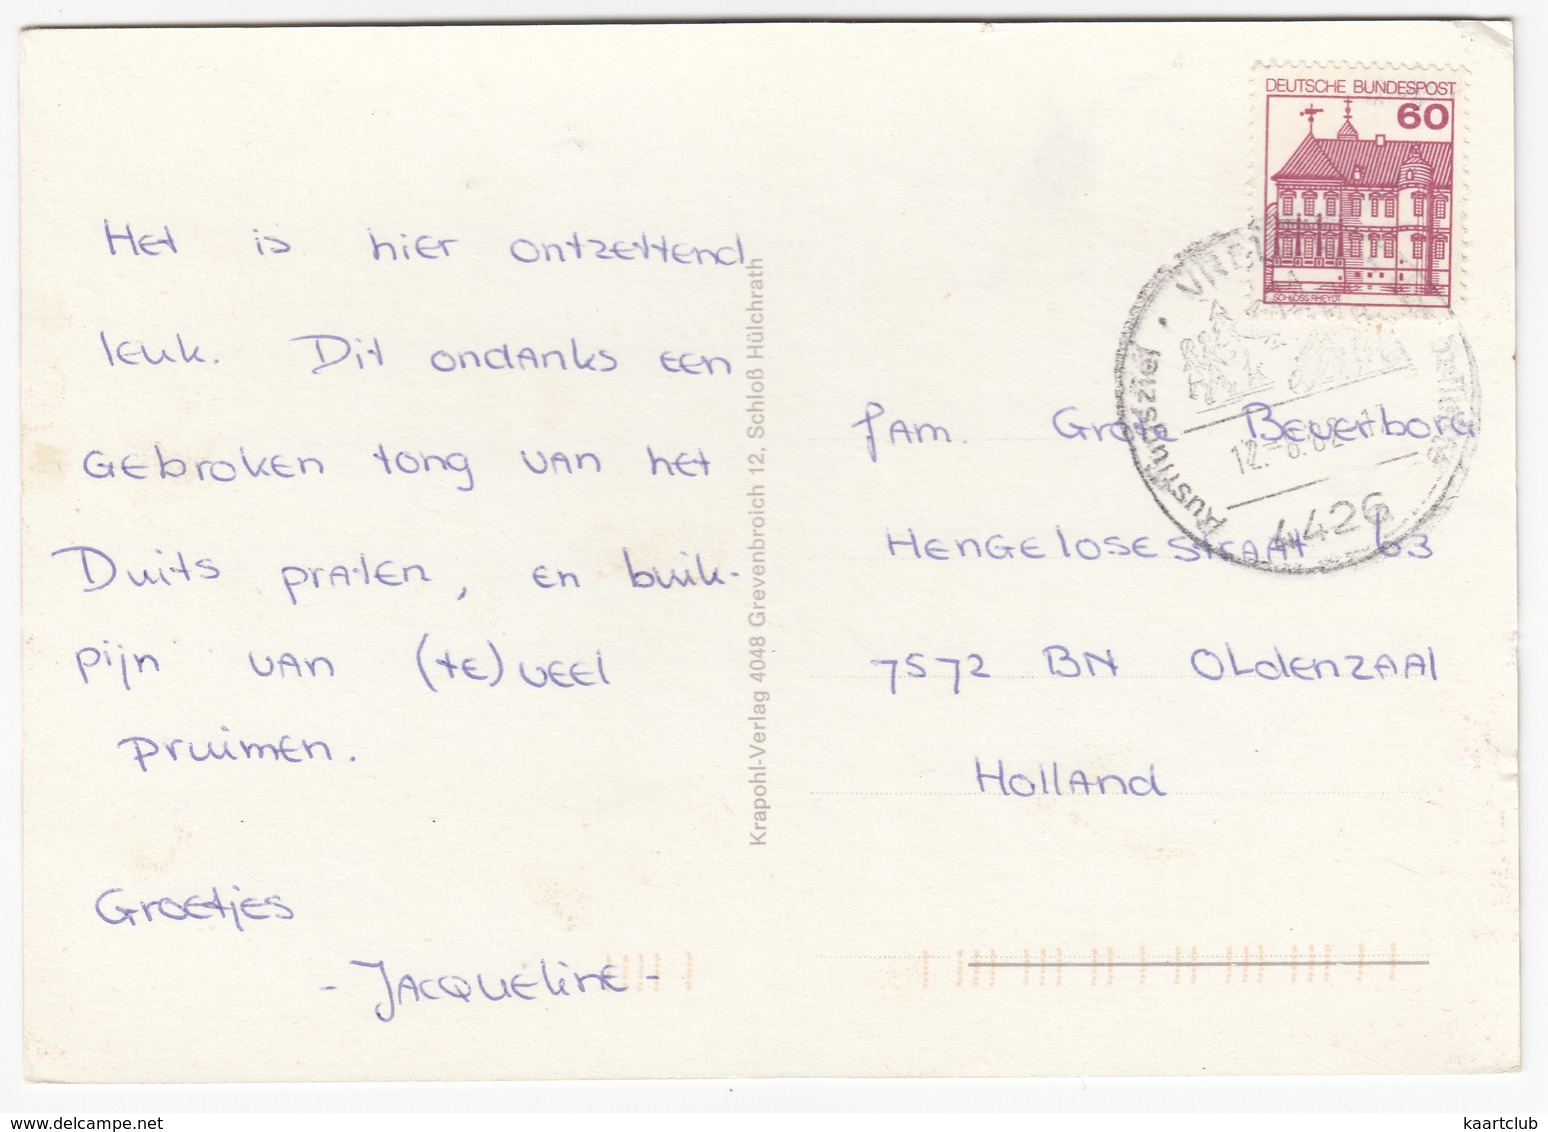 DEUTSCHE BUNDESPOST
60
SCHLOSS RHEYDT
Het is hier ontzettend
leuk. Dit ondanks een
gebroken tong van het
Duits praten, en buik-
pijn van (te) veel
pruimen.
Groetjes
- Jacqueline -
Krapohl-Verlag 4048 Grevenbroich 12, Schloß Hülchrath
Ausflugsziel
4426
Fam. Grote Beverborg
Hengelosestraat 63
7572 BN Oldenzaal
Holland
www.delcampe.net
kaartclub